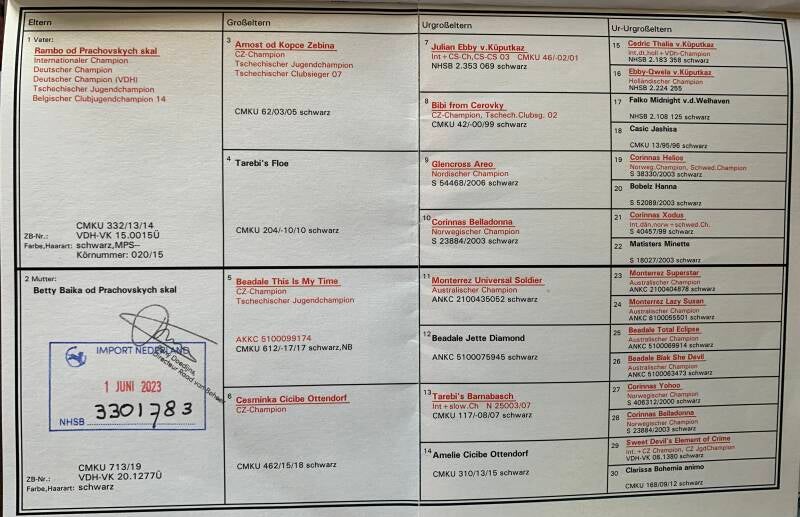 Eltern
Großeltern
Urgroßeltern
Ur-Urgroßeltern
1 Vater:
Rambo od Prachovskych skal
Internationaler Champion
Deutscher Champion
Deutscher Champion (VDH)
Tschechischer Jugendchampion
Belgischer Clubjugendchampion 14
CMKU 332/13/14
ZB-Nr.: VDH-VK 15.0015Ü
Farbe,Haarart: schwarz,MPS–
Körnummer: 020/15
2 Mutter:
Betty Baika od Prachovskych skal
IMPORT NEDERLAND
1 JUNI 2023
NHSB 3301783
CMKU 713/19
ZB-Nr.: VDH-VK 20.1277Ü
Farbe,Haarart: schwarz
3 Arnost od Kopce Zebina
CZ-Champion
Tschechischer Jugendchampion
Tschechischer Clubsieger 07
CMKU 62/03/05 schwarz
4 Tarebi's Floe
CMKU 204/-10/10 schwarz
5 Beadale This Is My Time
CZ-Champion
Tschechischer Jugendchampion
AKKC 5100099174
CMKU 612/-17/17 schwarz,NB
6 Cesminka Cicibe Ottendorf
CZ-Champion
CMKU 462/15/18 schwarz
7 Julian Ebby v.Küputkaz
Int+CS-Ch,CS-CS 03 CMKU 46/-02/01
NHSB 2.353 069 schwarz
8 Bibi from Cerovky
CZ-Champion, Tschech.Clubsg. 02
CMKU 42/-00/99 schwarz
9 Glencross Areo
Nordischer Champion
S 54468/2006 schwarz
10 Corinnas Belladonna
Norwegischer Champion
S 23884/2003 schwarz
11 Monterrez Universal Soldier
Australischer Champion
ANKC 2100435052 schwarz
12 Beadale Jette Diamond
ANKC 5100075945 schwarz
13 Tarebi's Barnabasch
Int+slow.Ch N 25003/07
CMKU 117/-08/07 schwarz
14 Amelie Cicibe Ottendorf
CMKU 310/13/15 schwarz
15 Cedric Thalia v.Küputkaz
Int,dt,holl+VDH-Champion
NHSB 2.183 358 schwarz
16 Ebby-Qwela v.Küputkaz
Holländischer Champion
NHSB 2.224 255
17 Falko Midnight v.d.Welhaven
NHSB 2.108 125 schwarz
18 Casic Jashisa
CMKU 13/95/96 schwarz
19 Corinnas Helios
Norweg.Champion, Schwed.Champion
S 38330/2003 schwarz
20 Bobelz Hanna
S 52089/2003 schwarz
21 Corinnas Xodus
Int.dän,norw+schwed.Ch.
S 40457/99 schwarz
22 Matisters Minette
S 18027/2003 schwarz
23 Monterrez Superstar
Australischer Champion
ANKC 2100404878 schwarz
24 Monterrez Lazy Suzan
Australischer Champion
ANKC 6100055501 schwarz
25 Beadale Total Eclipse
Australischer Champion
ANKC 5100069914 schwarz
26 Beadale Blak She Devil
Australischer Champion
ANKC 5100063473 schwarz
27 Corinnas Yohoo
Norwegischer Champion
S 406312/2000 schwarz
28 Corinnas Belladonna
Norwegischer Champion
S 23884/2003 schwarz
29 Sweet Devil's Element of Crime
Int.+CZ Champion, CZ JgdChampion
VDH-VK 08.1380 schwarz
30 Clarissa Bohemia animo
CMKU 168/09/12 schwarz